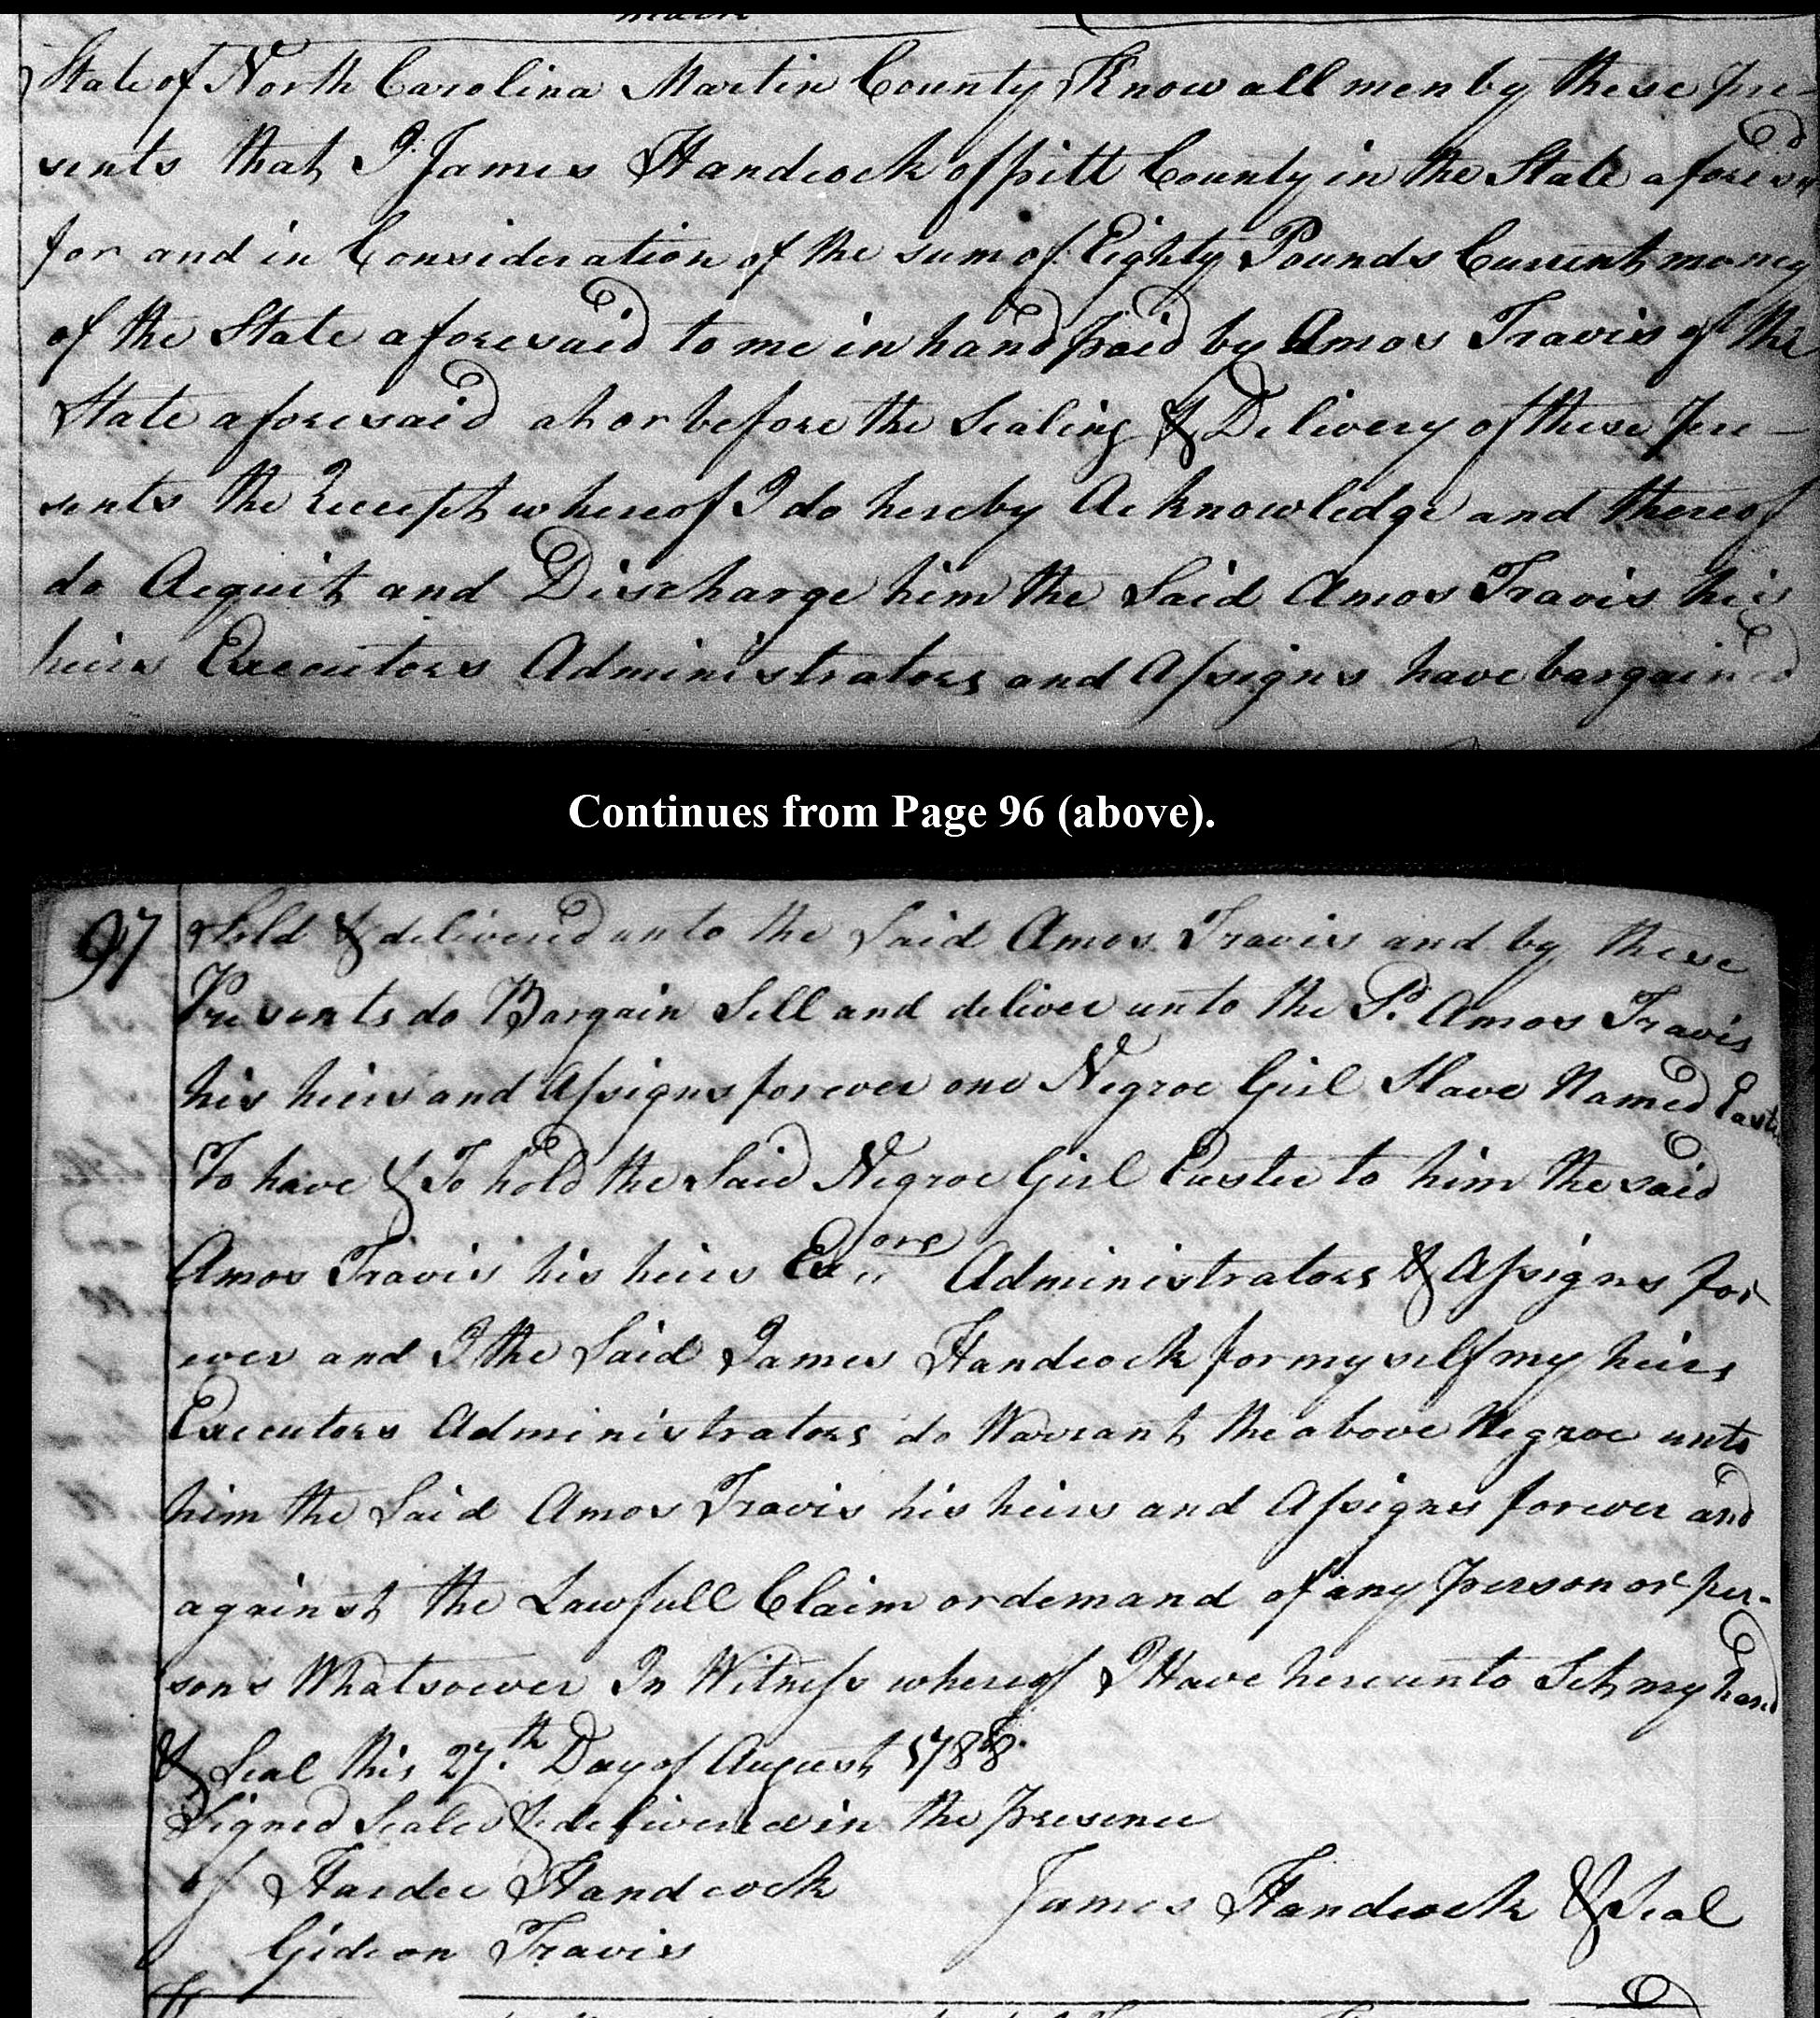 mark
State of North Carolina Martin County Know all men by these pre-
sents that I James Handcock of pitt County in the State aforesd
for and in Consideration of the sum of Eighty Pounds Current money
of the State aforesaid to me in hand paid by Amos Travis of the
State aforesaid at or before the Sealing & Delivery of these pre-
sents the Receept whereof I do hereby Acknowledge and thereof
do Acquit and Discharge him the Said Amos Travis his
heirs Executors Administrators and Assigns have bargained
Continues from Page 96 (above).
97
Sold & delivered unto the Said Amos Travis and by these
Presents do Bargain Sell and deliver unto the Sd. Amos Travis
his heirs and Assigns forever one Negroe Girl Slave Named
To have & To hold the Said Negroe Girl Easter to him the said
Amos Travis his heirs Exors Administrators & Assigns for
ever and I the Said James Handcock for my self my heirs
Executors Administrators do Warrant the above Negroe unto
him the Said Amos Travis his heirs and Assigns forever and
against the Lawfull Claim or demand of any person or per-
sons Whatsoever In Witness whereof I Have hereunto Set my hand
& Seal this 27th Day of August 1788.
Signed Sealed & delivered in the presence
of Hardee Handcock James Handcock & Seal
Gideon Travis